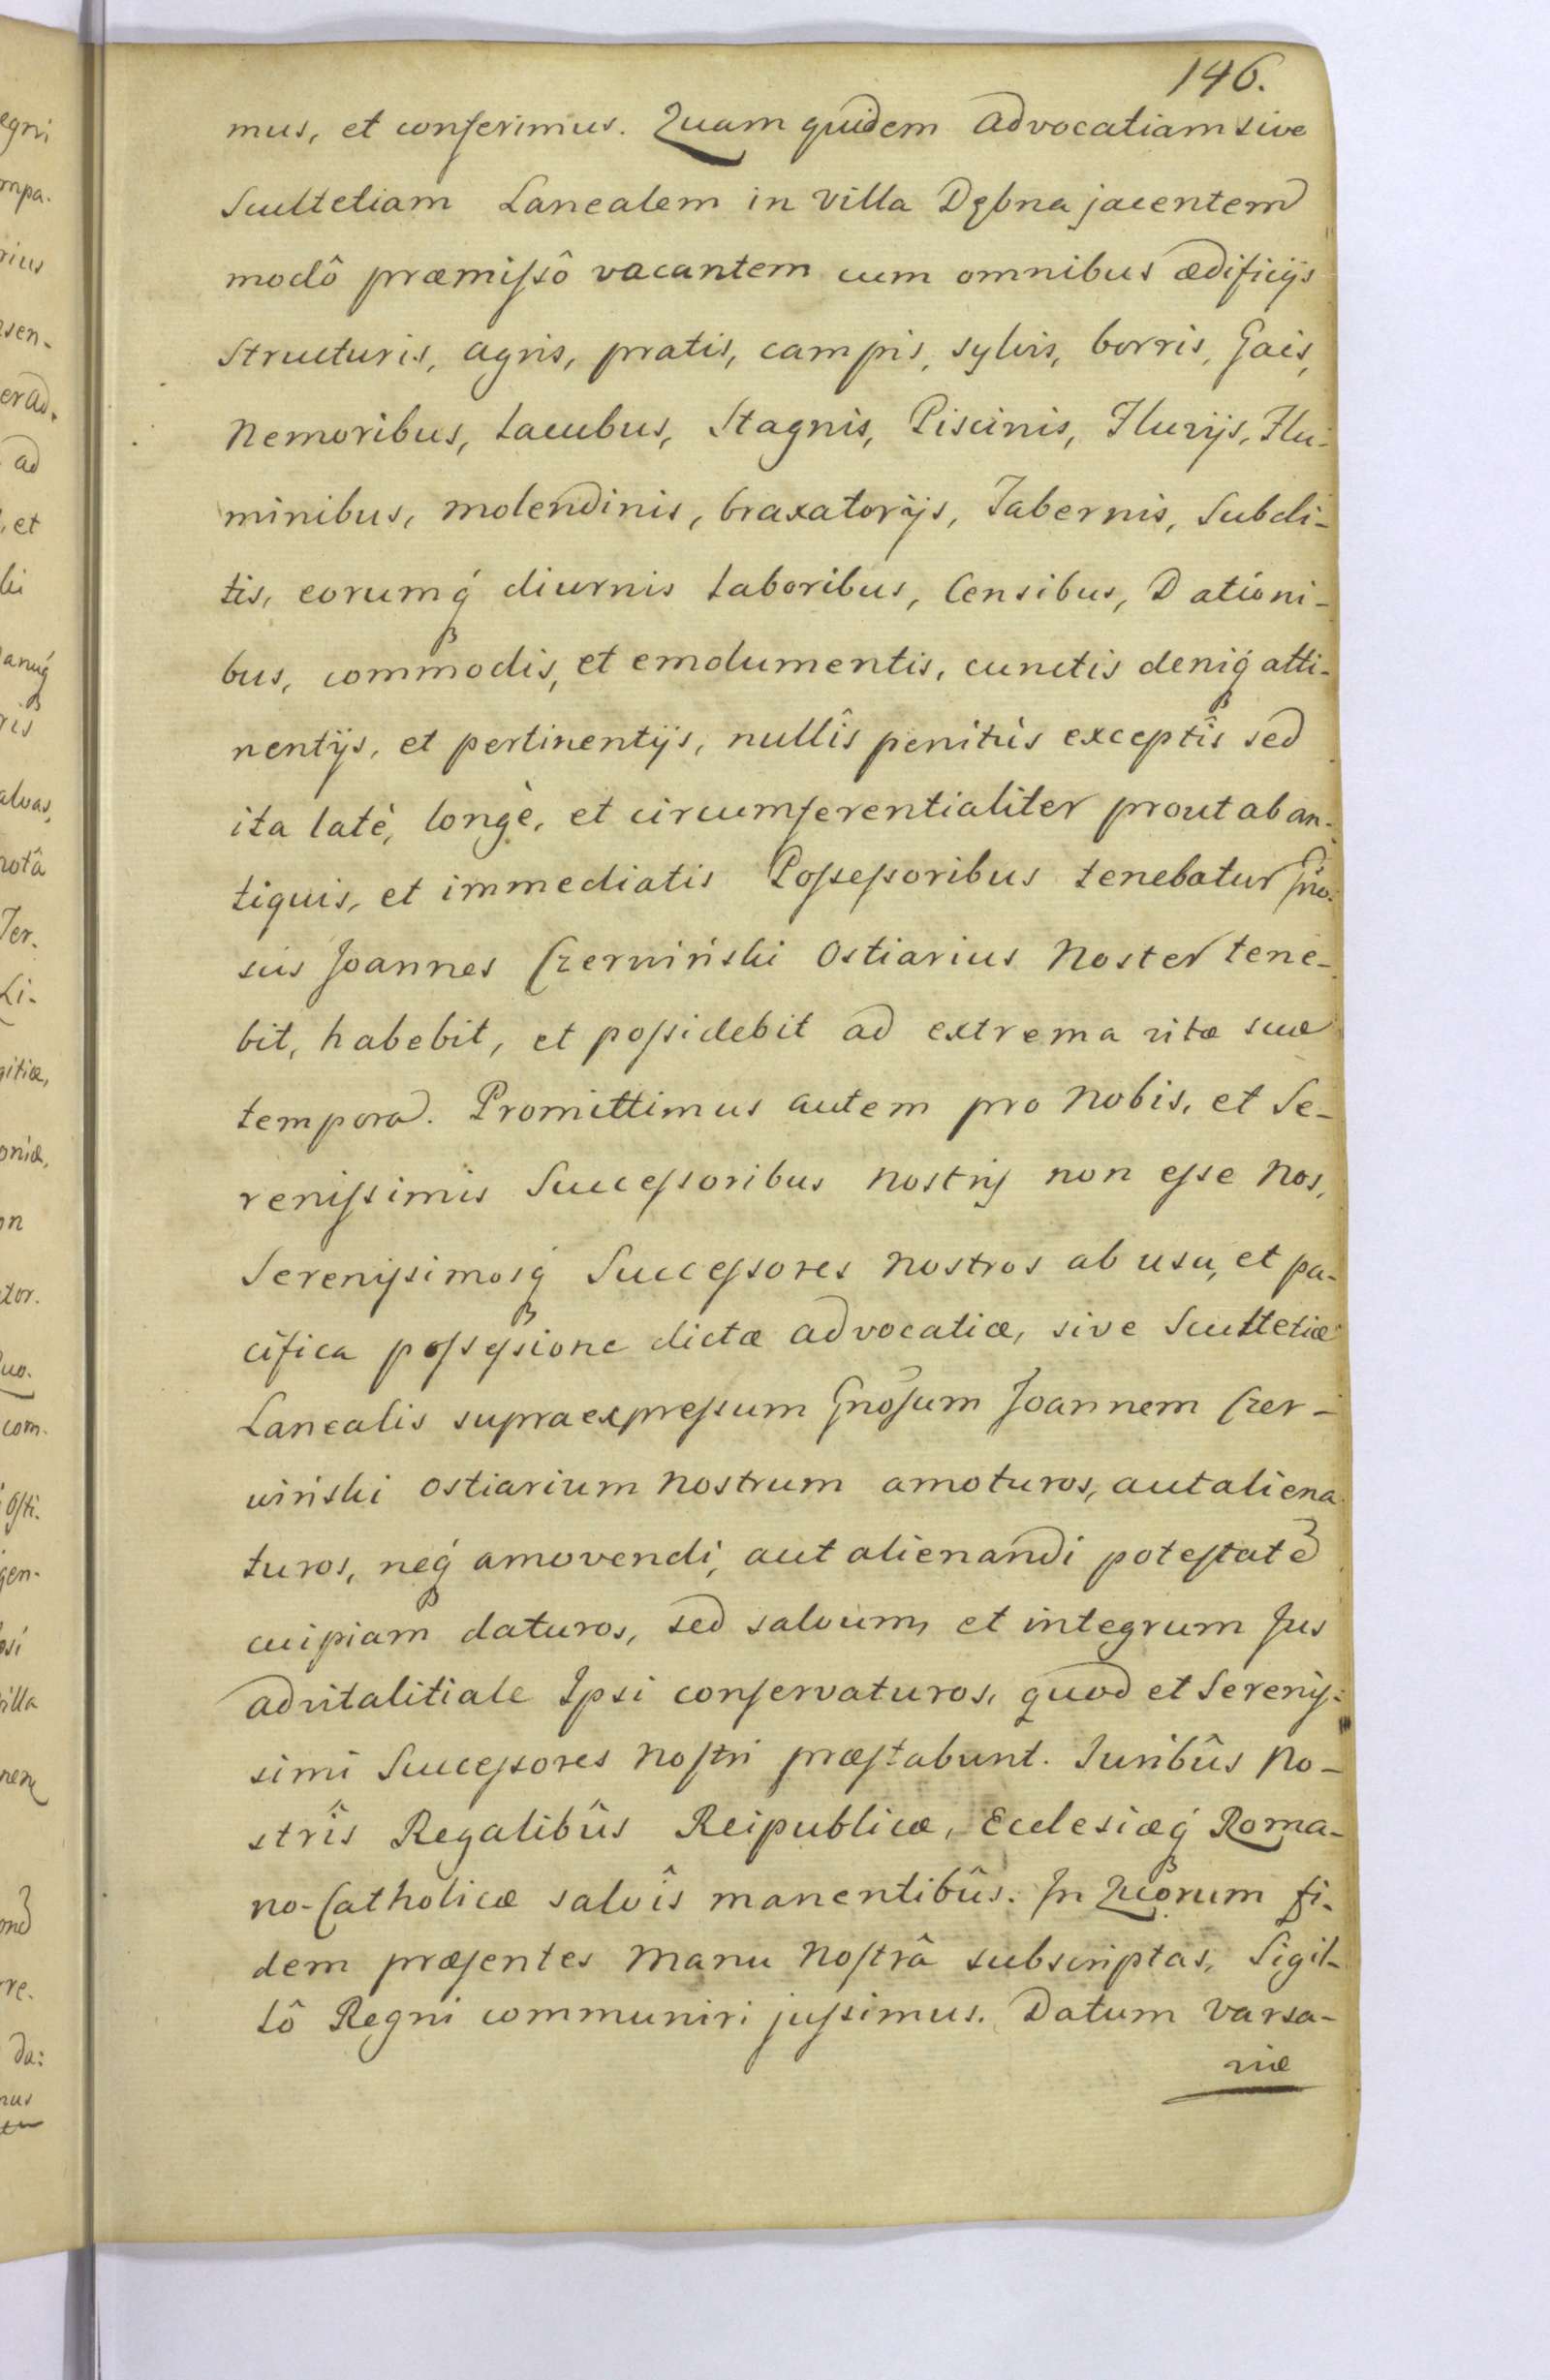 146.
mus, et conferimus. Quam quidem Advocatiam sive
Scultetiam Lanealem in villa Dębna jacentem
modô præmissô vacantem cum omnibus ædificijs
structuris, agris, pratis, campis, sylvis, borris, Gais,
Nemoribus, Lacubus, Stagnis, Piscinis, Fluvijs, Flu-
minibus, molendinis, braxatorijs, Tabernis, Subdi-
tis, eorumq́ diurnis Laboribus, Censibus, Dationi-
bus, commodis, et emolumentis, cunctis deniq́ atti-
nentijs, et pertinentijs, nullîs penitùs exceptîs sed
ita latè, longè, et circumferentialiter prout ab an-
tiquis, et immediatis Possessoribus tenebatur Gno-
sus Joannes Czerwiński Ostiarius Noster tene-
bit, habebit, et possidebit ad extrema vitæ suæ
tempora. Promittimus autem pro Nobis, et Se-
renissimis Successoribus Nostris non esse Nos,
Serenissimosq́ Successores Nostros ab usu, et pa-
cifica possessione dictæ advocatiæ, sive Scultetiæ
Lanealis supraexpressum Gnosum Joannem Czer-
wiński Ostiarium Nostrum amoturos, aut aliena
turos, neq́ amovendi, aut alienandi potestatē
cuipiam daturos, sed salvum, et integrum Jus
advitalitiale Ipsi conservaturos, quod et Serenis-
simi Successores Nostri præstabunt. Juribûs No-
strîs Regalibûs Reipublicæ, Ecclesiæq́ Roma-
no-Catholicæ salvîs manentibûs. In Quorum fi-
dem præsentes Manu Nostrâ subscriptas, Sigil-
lô Regni communiri jussimus. Datum Varsa-
viæ